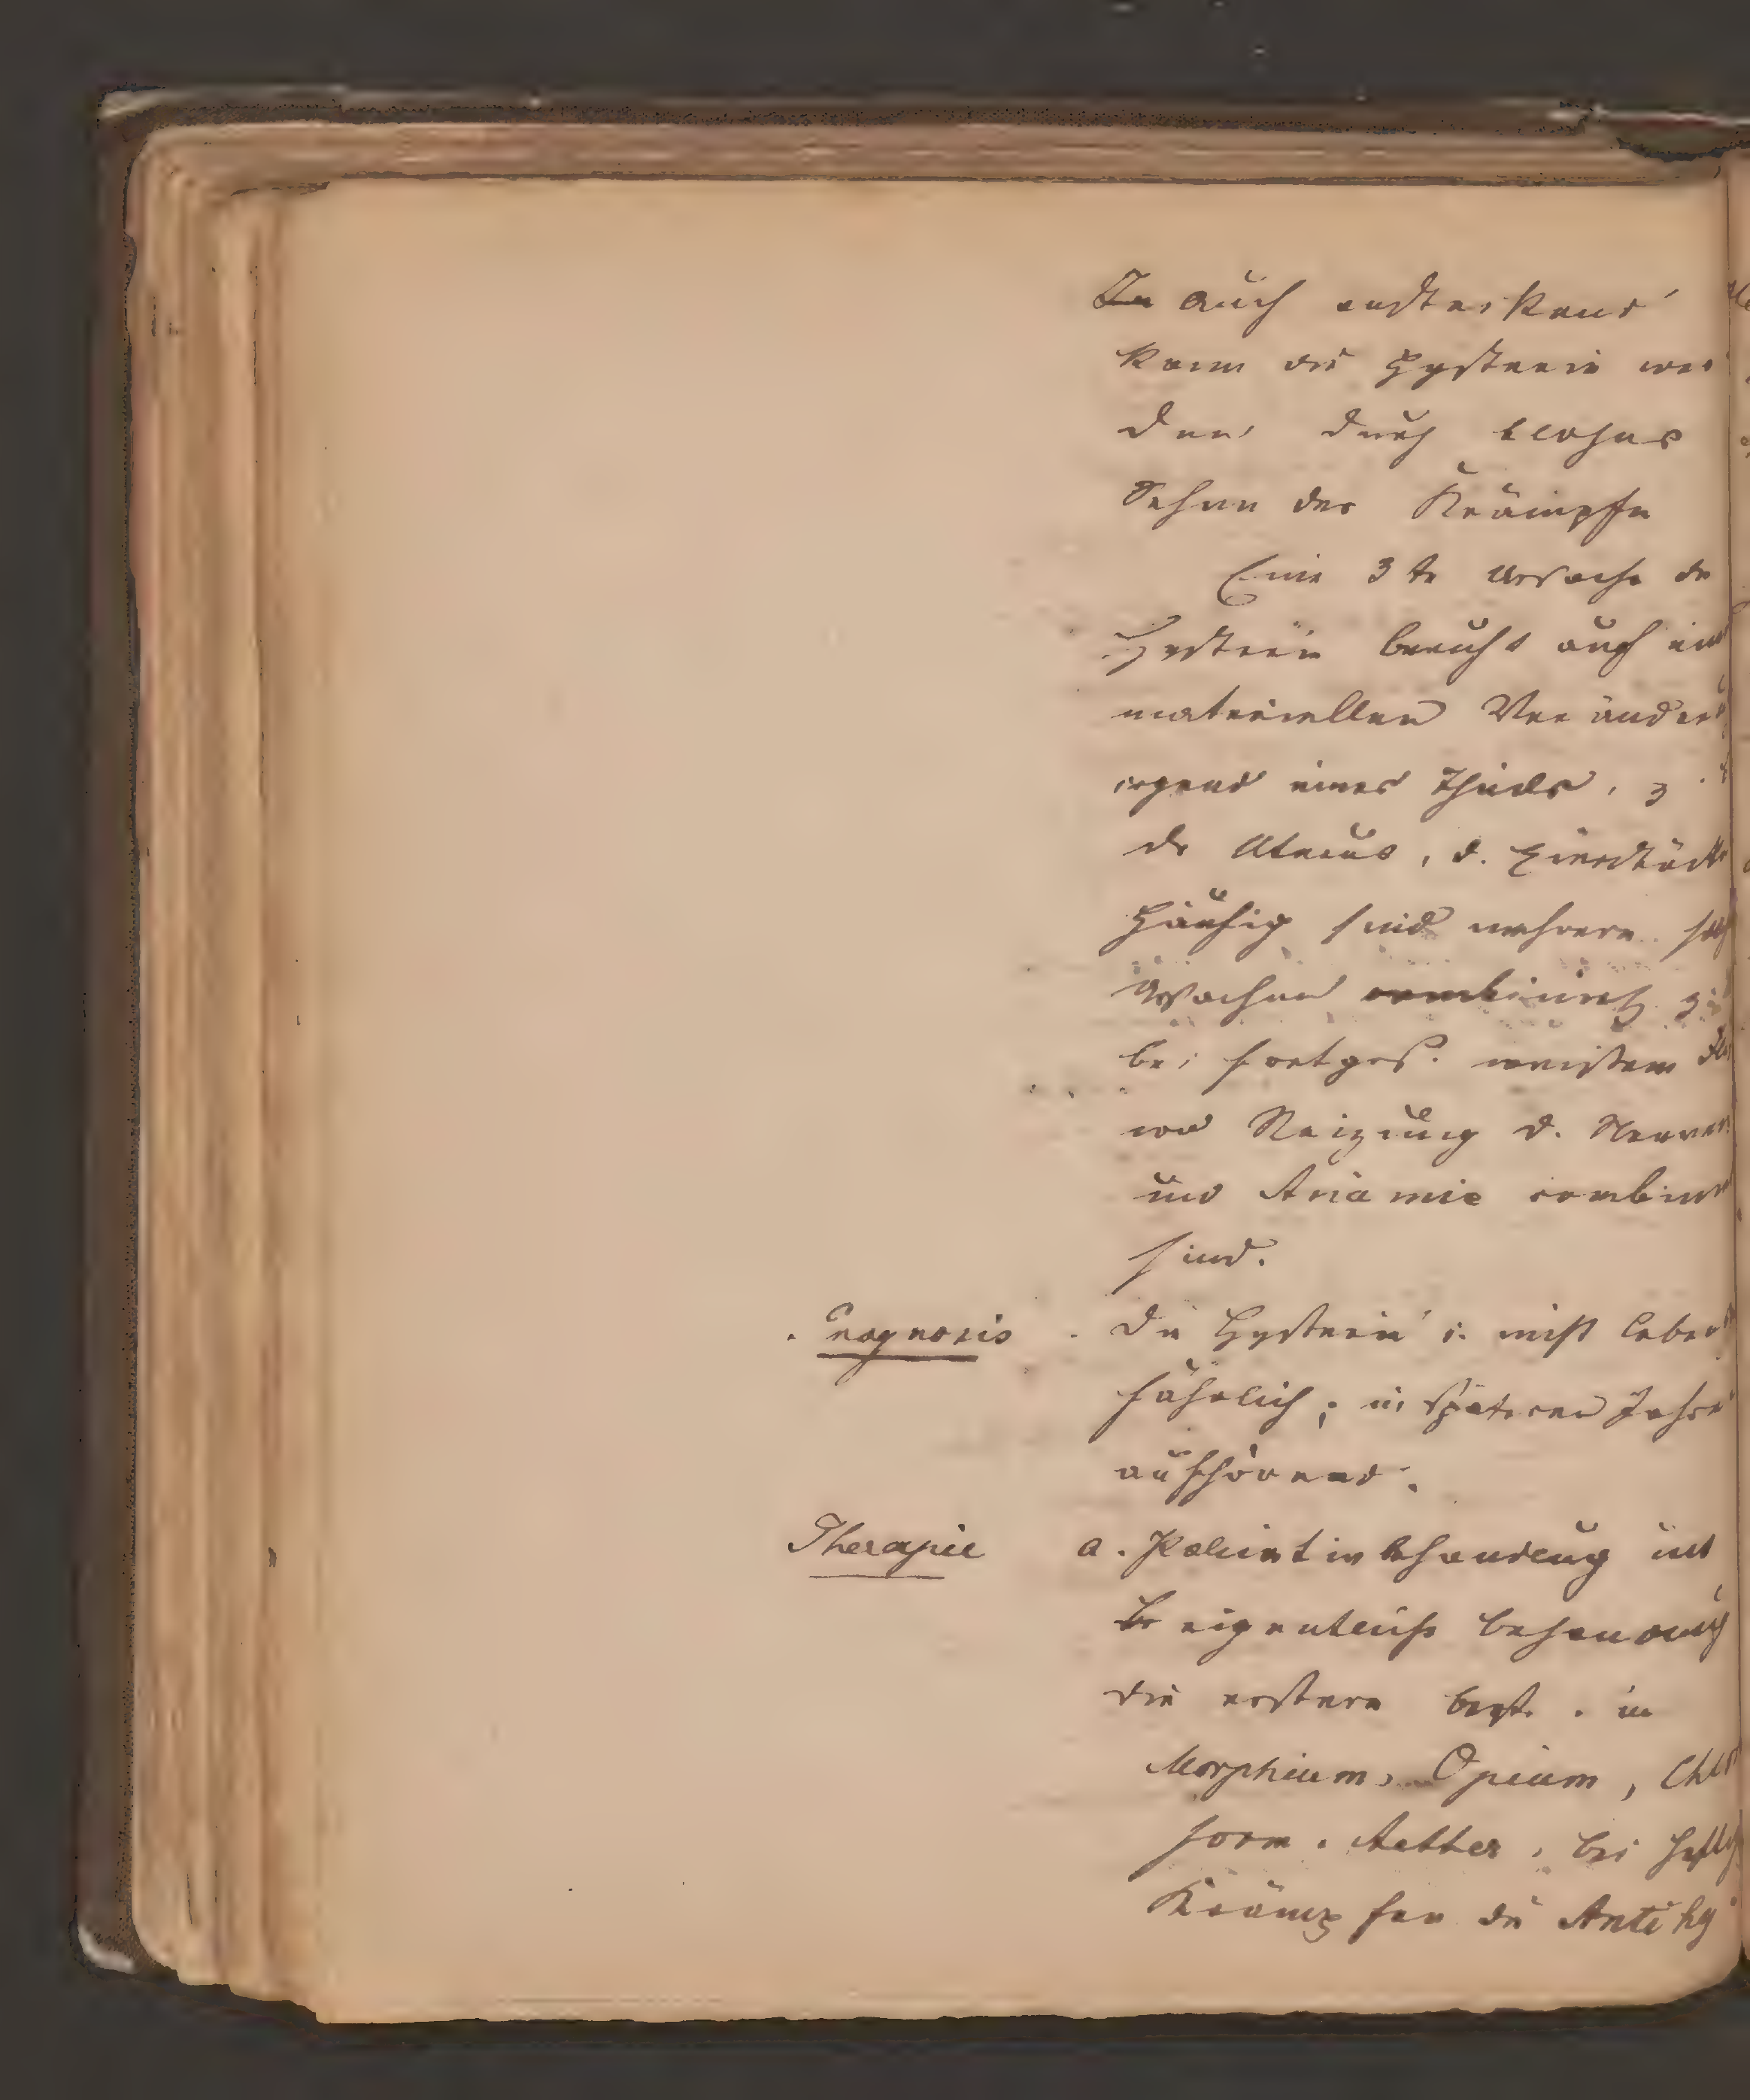 Ja auch ansteckend
kann die Hysterie wer
den durch bloßes
Sehen der Krämpfe
Eine 3te Ursache der
Hysterie beruht auf ein
materiellen Veränder
irgend eines Theiles, z.
des Uterus, d. Eierstöcke
Häufig sind mehrere
Ursachen combinirt z
bei fortges. weißem
wo Reizung d. Nerven
und Anämie combinir
sind.
Prognosis Die Hysterie i. nicht leben
fährlich; in späteren Jahre
aufhörend.
Therapie a. Paliativbehandlung und
b eigentliche Behandlung
die erstere best. in
Morphium, Opium, Chlo
form. Aether, bei heftig
Krämpfen die Antihy